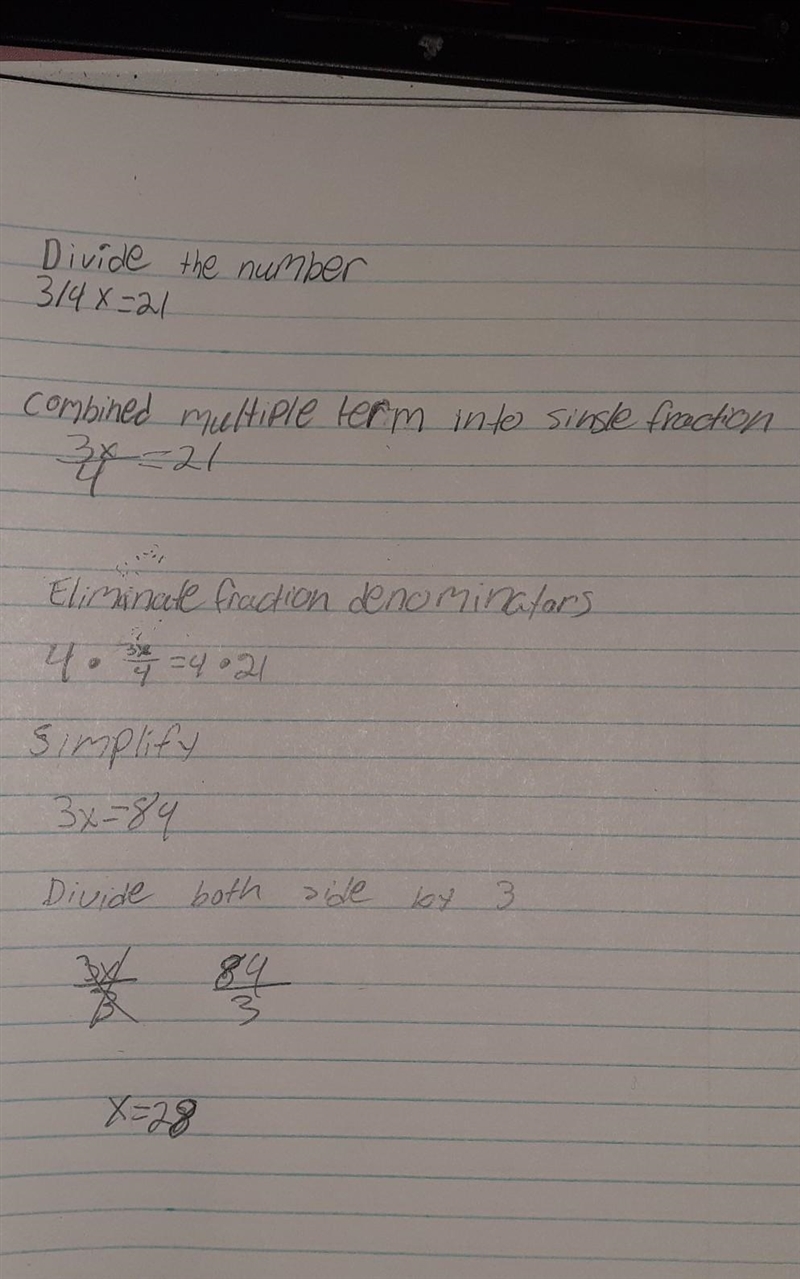 Divide the number
3/4 x = 21
Combined multiple term into single fraction
3x/4 = 21
Eliminate fraction denominators
4 • 3x/4 = 4 • 21
Simplify
3x = 84
Divide both side by 3
3x/3 84/3
x = 28